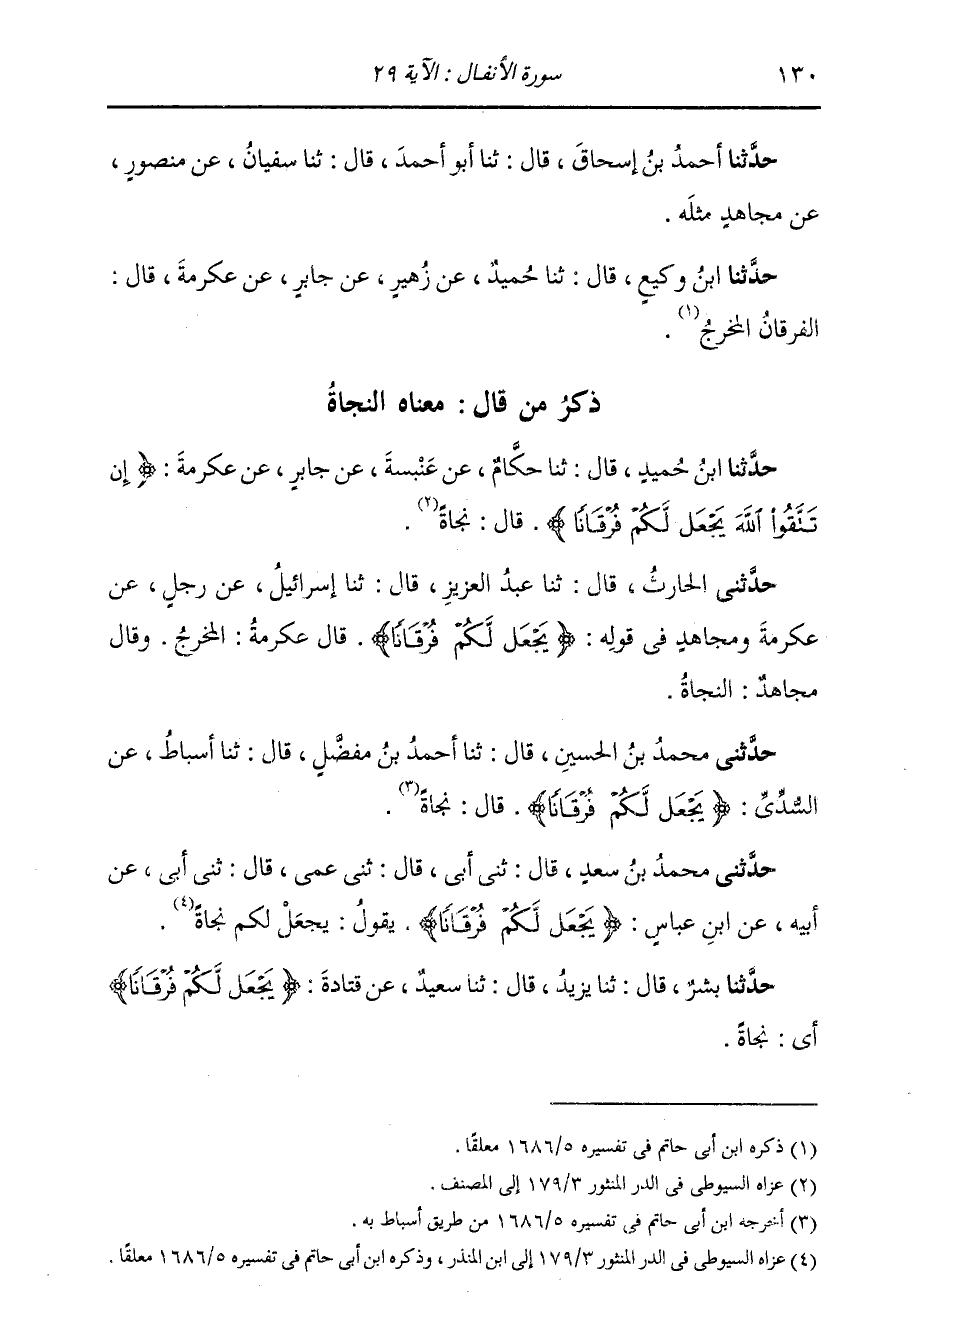 ١٣٠ سورة الأنفال : الآية ٢٩
حدَّثنا أحمدُ بنُ إسحاقَ ، قال : ثنا أبو أحمدَ ، قال : ثنا سفيانُ ، عن منصورٍ ،
عن مجاهدٍ مثلَه .
حدَّثنا ابنُ وكيعٍ ، قال : ثنا حُميدٌ ، عن زُهيرٍ ، عن جابرٍ ، عن عكرمةَ ، قال :
الفرقانُ المخرجُ(١) .
ذكرُ من قال : معناه النجاةُ
حدَّثنا ابنُ حُميدٍ ، قال : ثنا حكَّامٌ ، عن عَنْبسةَ ، عن جابرٍ ، عن عكرمةَ : ﴿ إِن
تَتَّقُوا۟ ٱللَّهَ يَجْعَل لَّكُمْ فُرْقَانًا ﴾ . قال : نجاةً(٢) .
حدَّثنى الحارثُ ، قال : ثنا عبدُ العزيزِ ، قال : ثنا إسرائيلُ ، عن رجلٍ ، عن
عكرمةَ ومجاهدٍ فى قولِه : ﴿ يَجْعَل لَّكُمْ فُرْقَانًا﴾ . قال عكرمةُ : المخرجُ . وقال
مجاهدٌ : النجاةُ .
حدَّثنى محمدُ بنُ الحسينِ ، قال : ثنا أحمدُ بنُ مفضَّلٍ ، قال : ثنا أسباطُ ، عن
السُّدِّىِّ : ﴿ يَجْعَل لَّكُمْ فُرْقَانًا﴾ . قال : نجاةً(٣) .
حدَّثنى محمدُ بنُ سعدٍ ، قال : ثنى أبى ، قال : ثنى عمى ، قال : ثنى أبى ، عن
أبيه ، عن ابنِ عباسٍ : ﴿ يَجْعَل لَّكُمْ فُرْقَانًا﴾ . يقولُ : يجعَلْ لكم نجاةً(٤) .
حدَّثنا بشرٌ ، قال : ثنا يزيدُ ، قال : ثنا سعيدٌ ، عن قتادةَ : ﴿ يَجْعَل لَّكُمْ فُرْقَانًا﴾
أى : نجاةً .
(١) ذكره ابن أبى حاتم فى تفسيره ١٦٨٦/٥ معلقًا .
(٢) عزاه السيوطى فى الدر المنثور ١٧٩/٣ إلى المصنف .
(٣) أخرجه ابن أبى حاتم فى تفسيره ١٦٨٦/٥ من طريق أسباط به .
(٤) عزاه السيوطى فى الدر المنثور ١٧٩/٣ إلى ابن المنذر ، وذكره ابن أبى حاتم فى تفسيره ١٦٨٦/٥ معلقًا .